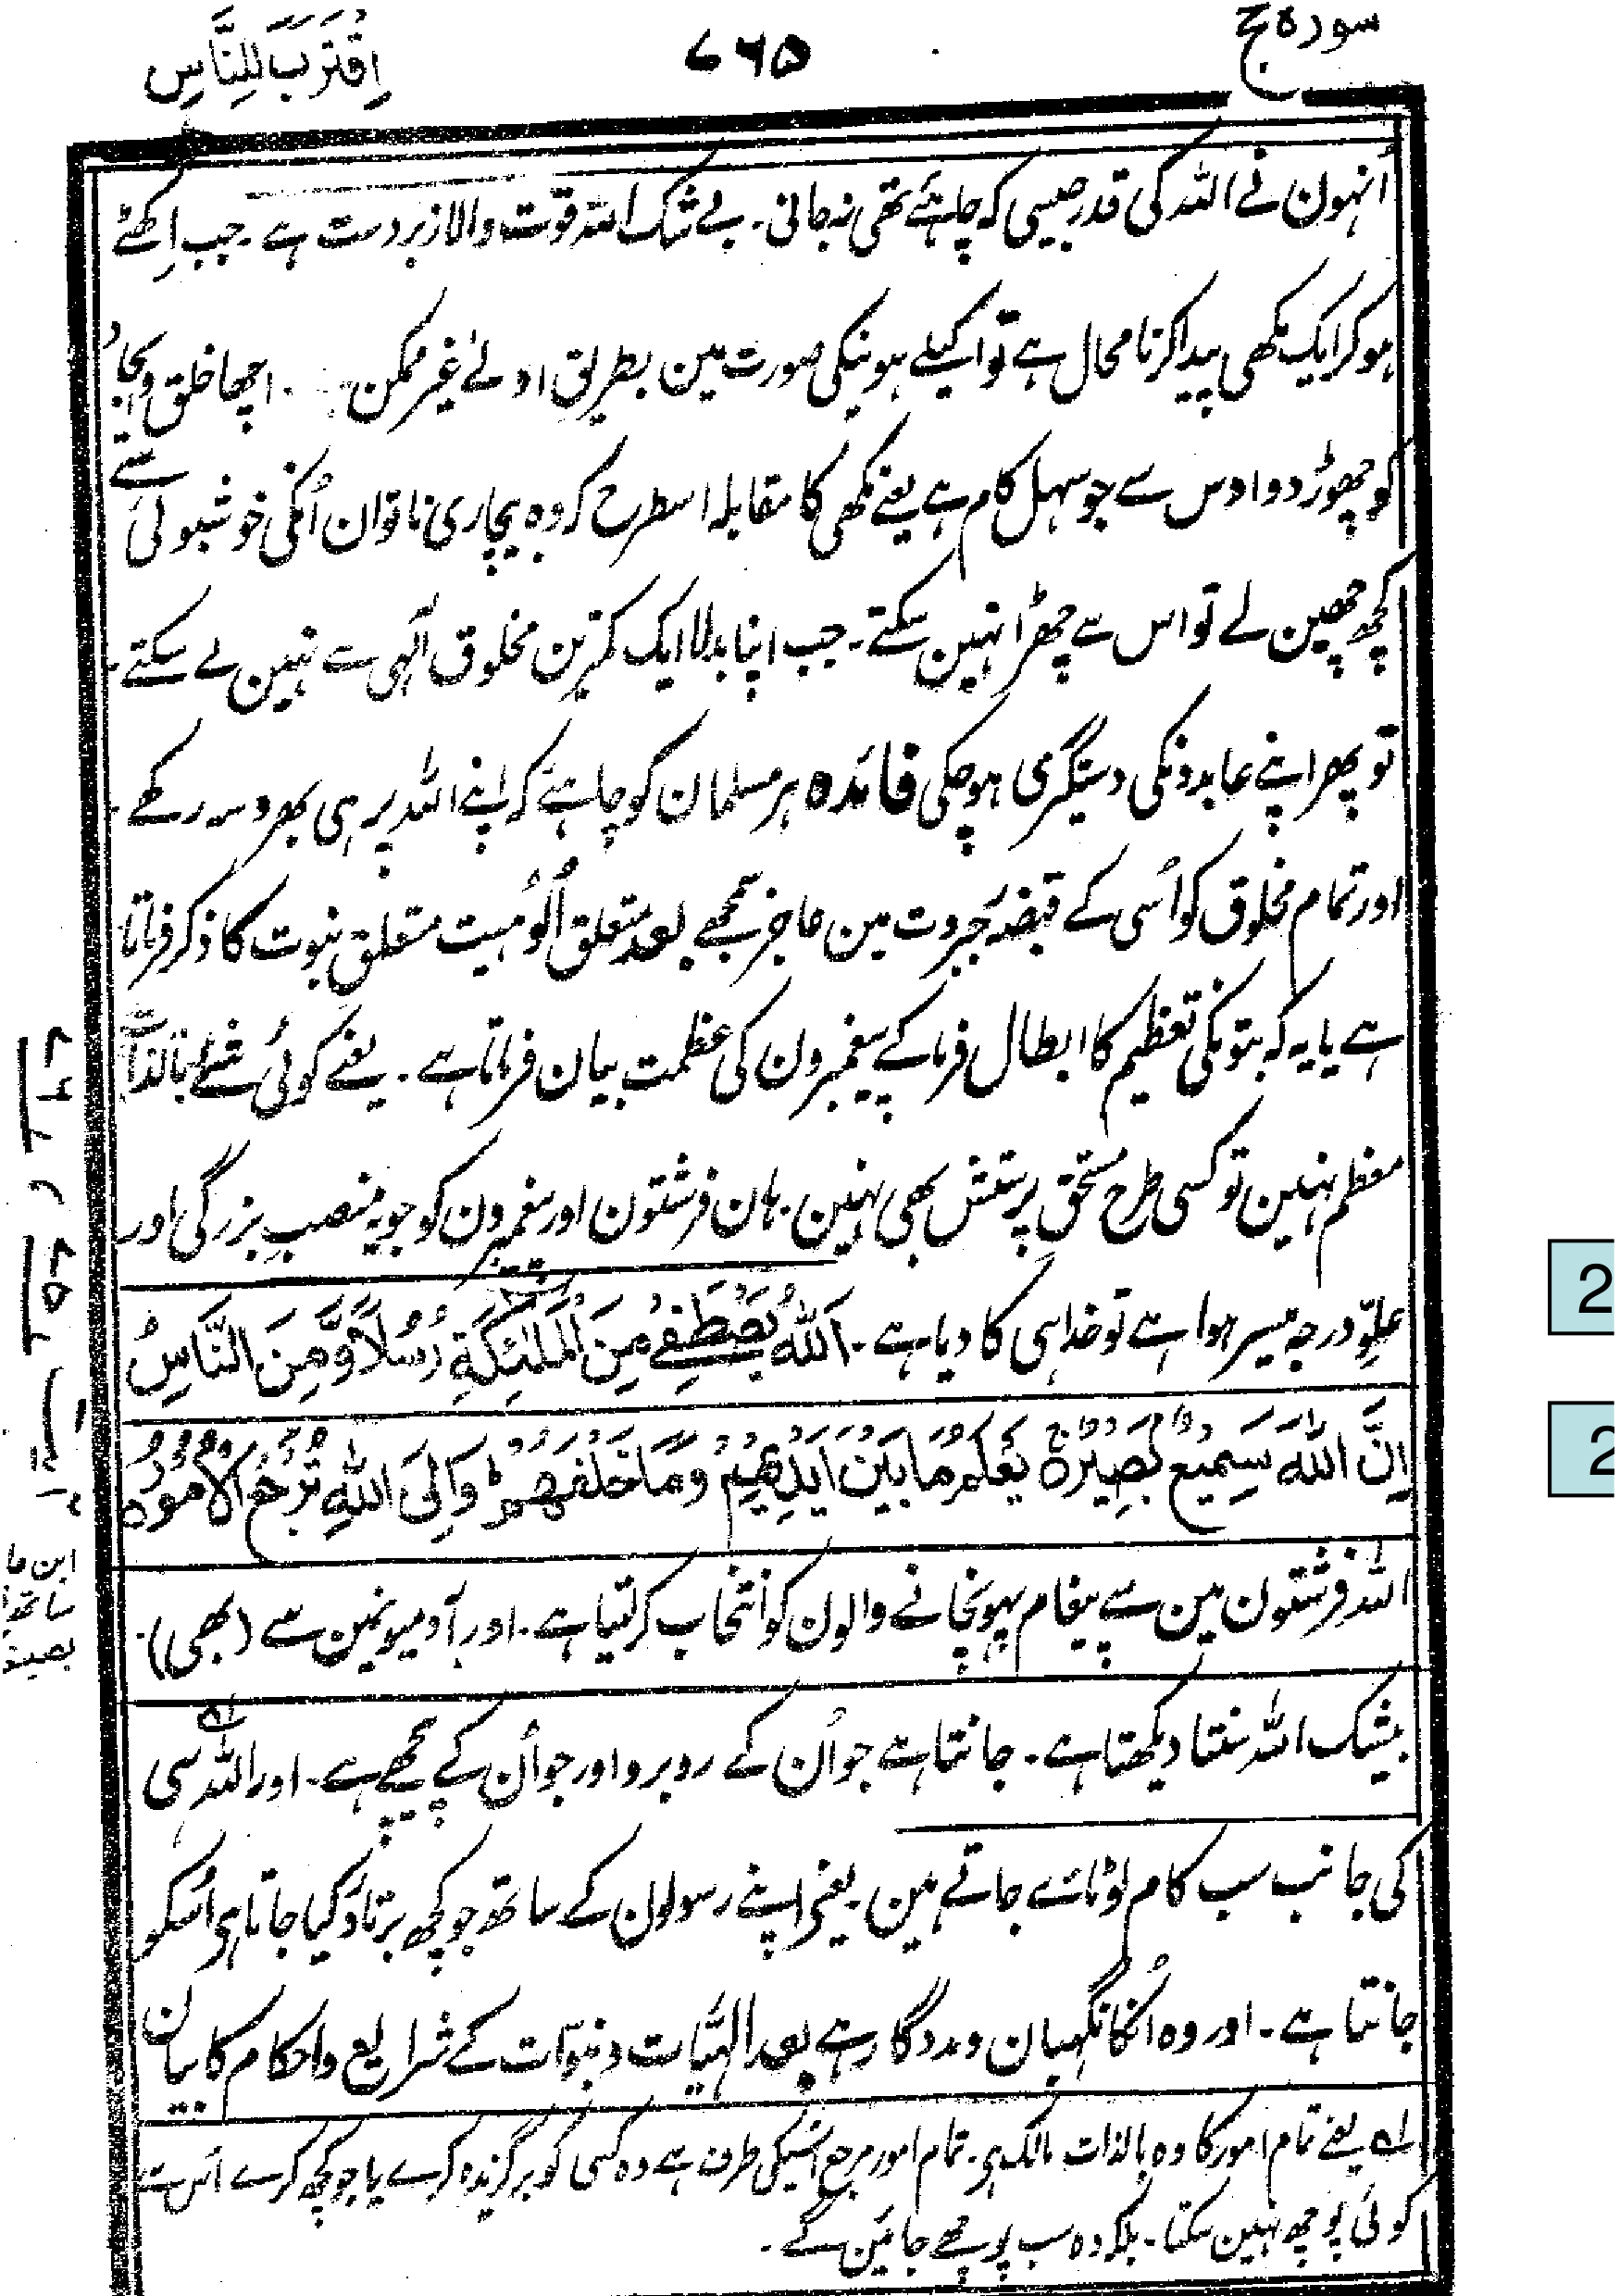 سورہ حج
۷۶۵
اِقْتَرَبَ لِلنَّاسِ
اُنہون نے اللہ کی قدر جیسی کہ چاہئے تھی نہ جانی۔ بے شک اللہ قوت والا زبردست ہے۔ جب اِکٹھے
ہو کر ایک مکھی پیدا کرنا محال ہے تو اکیلے ہونیکی صورت مین بطریق اولےٰ غیر ممکن۔ اچھا خلق و ایجاد
کو چھوڑ دو اوس سے جو سہل کام ہے یعنے مکھی کا مقابلہ اسطرح کہ وہ بیچاری ناتوان اُنکی خوشبوئی سے
کچھ چھین لے تو اس سے چھڑا نہین سکتے۔ جب اپنا بدلا ایک کمترین مخلوق الٰہی سے نہین لے سکتے۔
تو پھر اپنے عابدونکی دستگیری ہو چکی فائدہ ہر مسلمان کو چاہئے کہ اپنے اللہ پر ہی بھروسہ رکھے۔
اور تمام مخلوق کو اُسی کے قبضۂ جبروت مین عاجز سمجھے بعد متعلق اُلُوہیت متعلق نبوت کا ذکر فرماتا
ہے یا یہ کہ بتونکی تعظیم کا ابطال فرما کے پیغمبرون کی عظمت بیان فرماتا ہے۔ یعنے کوئی شئے بالذات
معظم نہین تو کسی طرح مستحق پرستش بھی نہین۔ ہان فرشتون اور پیغمبرون کو جو یہ منصب بزرگی اور
علوِّ درجہ میسر ہوا ہے تو خدا ہی کا دیا ہے۔ اَللّٰهُ يَصْطَفِيْ مِنَ الْمَلٰٓئِكَةِ رُسُلًا وَّمِنَ النَّاسِ
اِنَّ اللّٰهَ سَمِيْعٌۢ بَصِيْرٌ ۚ يَعْلَمُ مَا بَيْنَ اَيْدِيْهِمْ وَمَا خَلْفَهُمْ ؕ وَاِلَى اللّٰهِ تُرْجَعُ الْاُمُوْرُ ۝
اللہ فرشتون مین سے پیغام پہونچانے والون کو انتخاب کرلیتا ہے۔ اور آدمیونمین سے (بھی)۔
بیشک اللہ سنتا دیکھتا ہے۔ جانتا ہے جو اُن کے روبرو اور جو اُن کے پیچھے ہے۔ اور اللہ ہی
کی جانب سب کام لوٹائے جاتے ہین۔ یعنی اپنے رسولون کے ساتھ جو کچھ برتاؤ کیا جاتا ہی اُسکو
جانتا ہے۔ اور وہ اُنکا نگہبان و مددگار ہے بعد الٰہیّات و نبوّات کے شرایع و احکام کا بیان
لہ یعنے تمام امور کا وہ بالذات مالک ہی۔ تمام امور مرجع اُسیکی طرف ہے وہ کسی کو برگزیدہ کرے یا جو کچھ کرے اُس سے
کوئی پوچھ نہین سکتا۔ بلکہ وہ سب پوچھے جائین گے۔
ابن ما
2
2